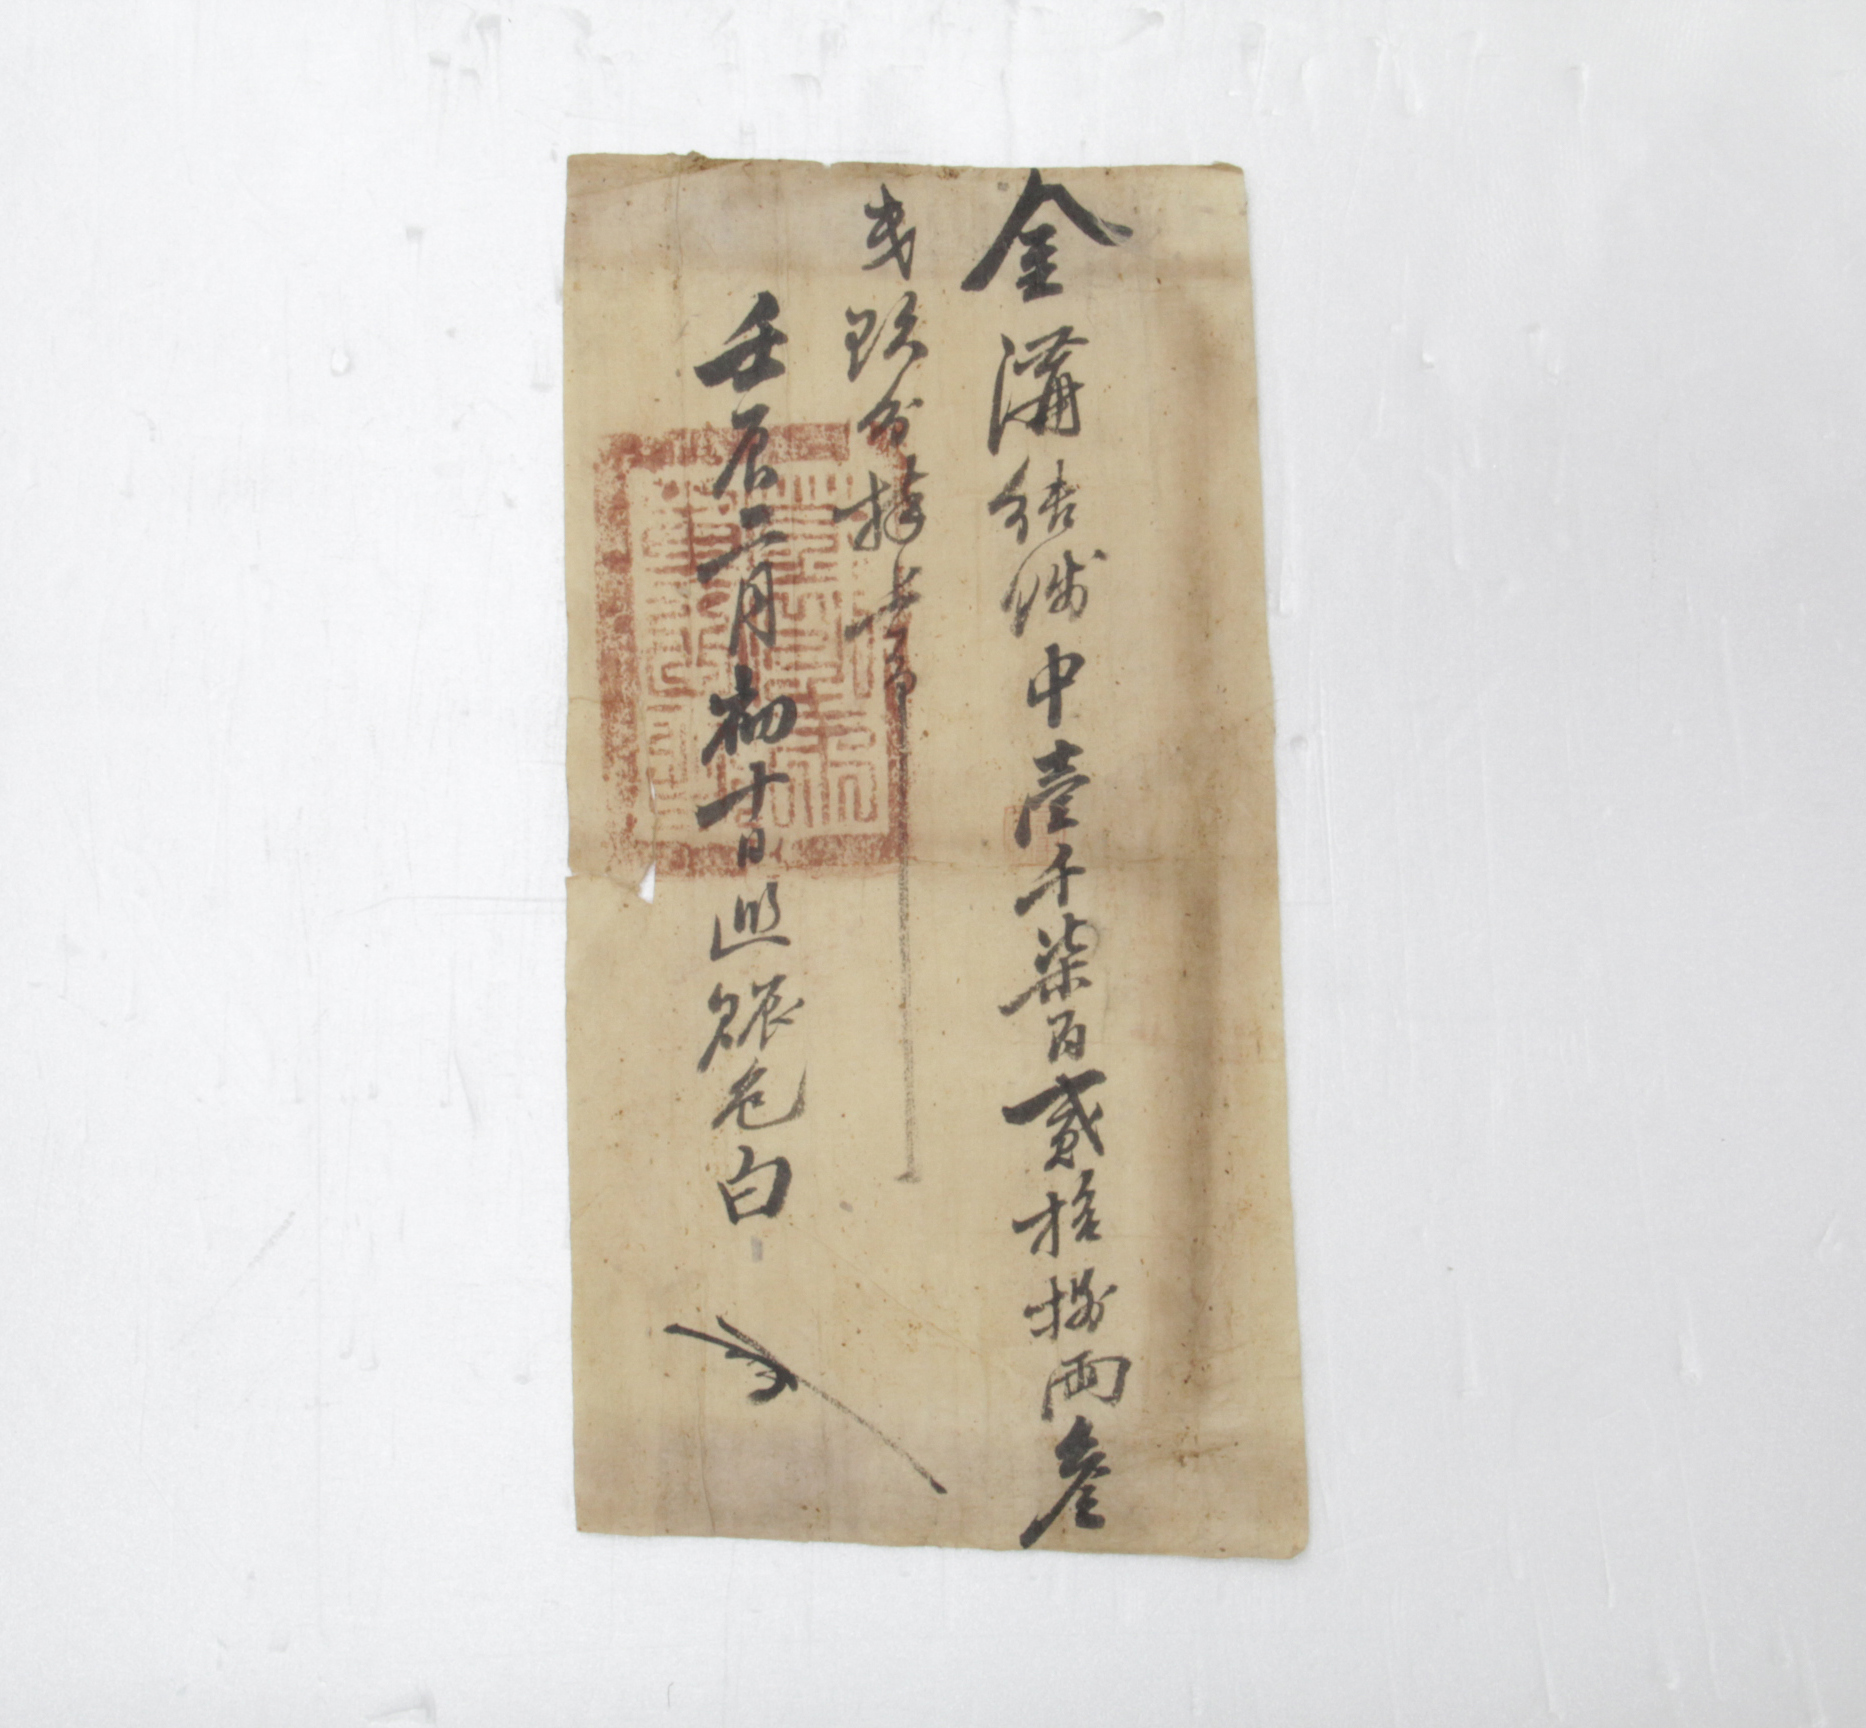 金溝結錢中壹千柒百貳拾捌兩叁
戔玖分捧上印
壬辰二月初十日巡賑色白